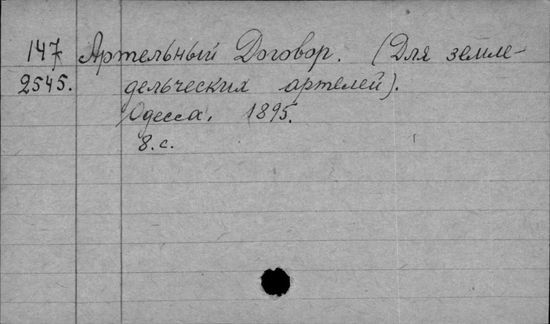 147 Артельный Договор. (Для земле-
2545. дельческих артелей).
Одесса, 1895.
8.с.